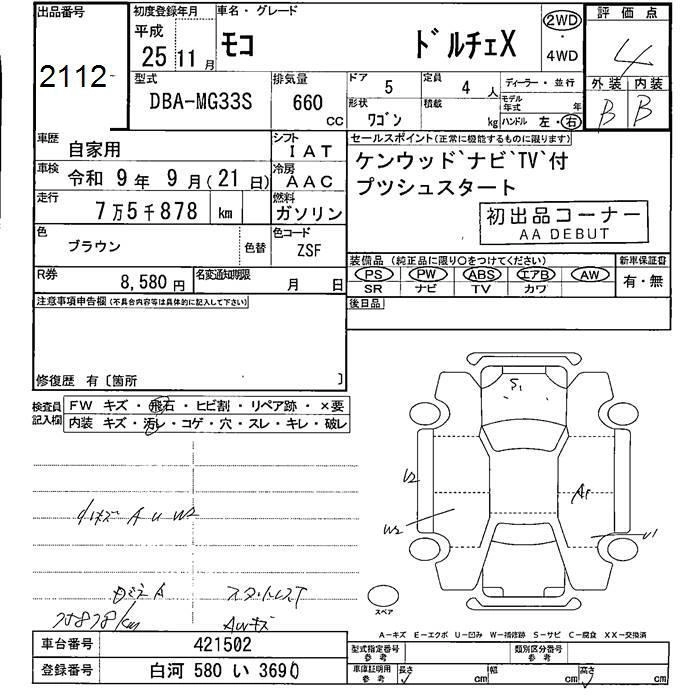 出品番号
2112
初度登録年月
平成
25年11月
車名・グレード
モコ ドルチェX
2WD
・
4WD
評価点
4
外装 内装
B B
型式
DBA-MG33S
排気量
660
CC
ドア 5
定員 4 人
ディーラー・並行
形状 ワゴン
積載 kg
モデル年式 年
ハンドル 左・右
車歴 自家用
シフト IAT
車検 令和 9年 9月(21日)
冷房 AAC
走行 7万5千878 km
燃料 ガソリン
色 ブラウン 色替
色コード ZSF
R券 8,580円
名変通知期限 月 日
セールスポイント(正常に機能するものに限ります)
ケンウッド、ナビ、TV、付
プツシュスタート
初出品コーナー
AA DEBUT
装備品(純正品に限り○をつけてください)
PS PW ABS エアB AW
SR ナビ TV カワ
新車保証書
有・無
後日品
注意事項申告欄(不具合内容等は具体的に記入して下さい)
修復歴 有〔箇所 〕
検査員記入欄
FW キズ・飛石・ヒビ割・リペア跡・×要
内装 キズ・汚レ・コゲ・穴・スレ・キレ・破レ
小キズ A U W2
75878km
AWキズ
S1
U2
W2
A1
U1
スペア
A−キズ E−エクボ U−凹み W−補修跡 S−サビ C−腐食 XX−交換済
車台番号 421502
登録番号 白河 580 い 3690
型式指定番号 参考
類別区分番号 参考
車庫証明用 参考
長さ cm
幅 cm
高さ cm